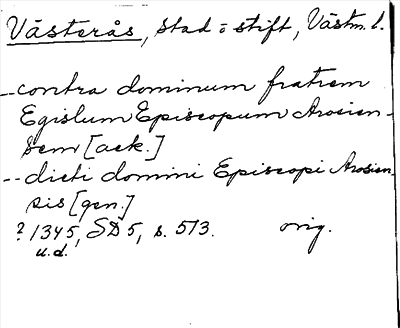 Västerås, stad o stift, Västm. l.
--contra dominum fratrem
Egislum Episcopum Arosien-
sem [ack.]
-- dicti domini Episcopi Arosien-
sis [gen.]
? 1345, SD 5, s. 513. orig.
u.d.